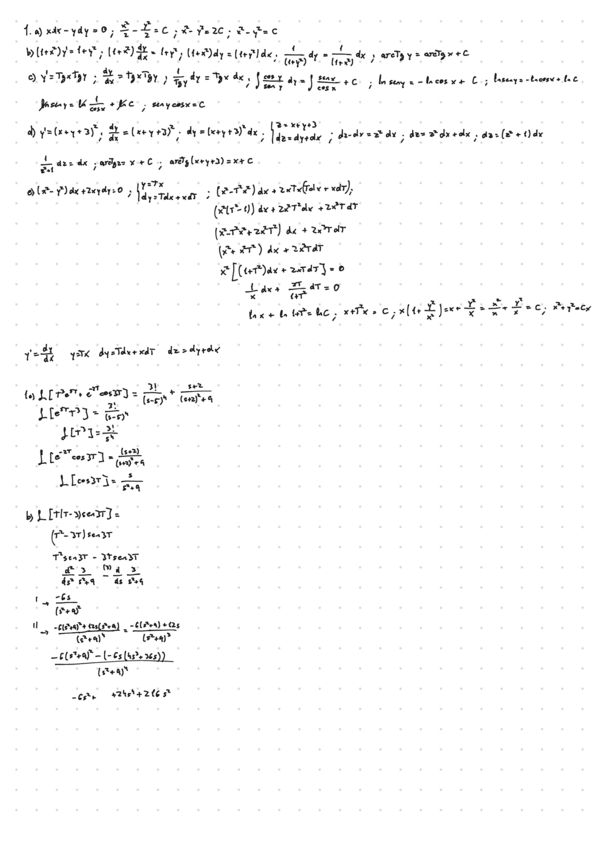 1. a) xdx - ydy = 0 ; x²/2 - y²/2 = C ; x² - y² = 2C ; x² - y² = C
b) (1+x²)y' = 1+y² ; (1+x²) dy/dx = 1+y² ; (1+x²)dy = (1+y²)dx ; 1/(1+y²) dy = 1/(1+x²) dx ; arcTg y = arcTg x + C
c) y' = Tgx Tgy ; dy/dx = Tgx Tgy ; 1/Tgy dy = Tgx dx ; ∫ cos y/sen y dy = ∫ senx/cosx + C ; ln seny = -ln cosx + C ; ln seny = -lncosx + ln C
ln seny = ln 1/cosx + ln C ; seny cosx = C
d) y' = (x+y+3)² ; dy/dx = (x+y+3)² ; dy = (x+y+3)² dx ; { z = x+y+3 dz = dy+dx ; dz-dx = z² dx ; dz = z² dx + dx ; dz = (z²+1) dx
1/z²+1 dz = dx ; arcTgz = x + C ; arcTg(x+y+3) = x + C
e) (x²-y²)dx + 2xydy = 0 ; { y = Tx dy = Tdx + xdT ; (x²-T²x²)dx + 2xTx(Tdx + xdT);
(x²(T²-1)) dx + 2x²T²dx + 2x³T dT
(x²-T²x² + 2x²T²) dx + 2x³T dT
(x² + x²T²) dx + 2x³T dT
x² [(1+T²)dx + 2xT dT] = 0
1/x dx + 2T/1+T² dT = 0
ln x + ln 1+T² = ln C ; x+T²x = C ; x(1+ y²/x²) = x + y²/x = x²/x + y²/x = C ; x²+y² = Cx
y' = dy/dx y=Tx dy=Tdx+xdT dz=dy+dx
1a) L[T³e⁵ᵀ + e⁻²ᵀcos3T] = 3!/(s-5)⁴ + s+2/(s+2)²+9
L[e⁵ᵀT³] = 3!/(s-5)⁴
L[T³] = 3!/s⁴
L[e⁻²ᵀ cos3T] = (s+2)/(s+2)²+9
L[cos3T] = s/s²+9
b) L[T(T-3)sen3T] =
(T²-3T)sen3T
T²sen3T - 3Tsen3T
d²/ds² 3/s²+9 - (3) d/ds 3/s²+9
I → -6s/(s²+9)²
II → -6(s²+9)² + 12s(s²+9)/(s²+9)⁴ = -6(s²+9)+12s/(s²+9)³
-6(s²+9)² - (-6s(4s³+36s))/(s²+9)⁴
-6s²+ +24s⁴+216s²